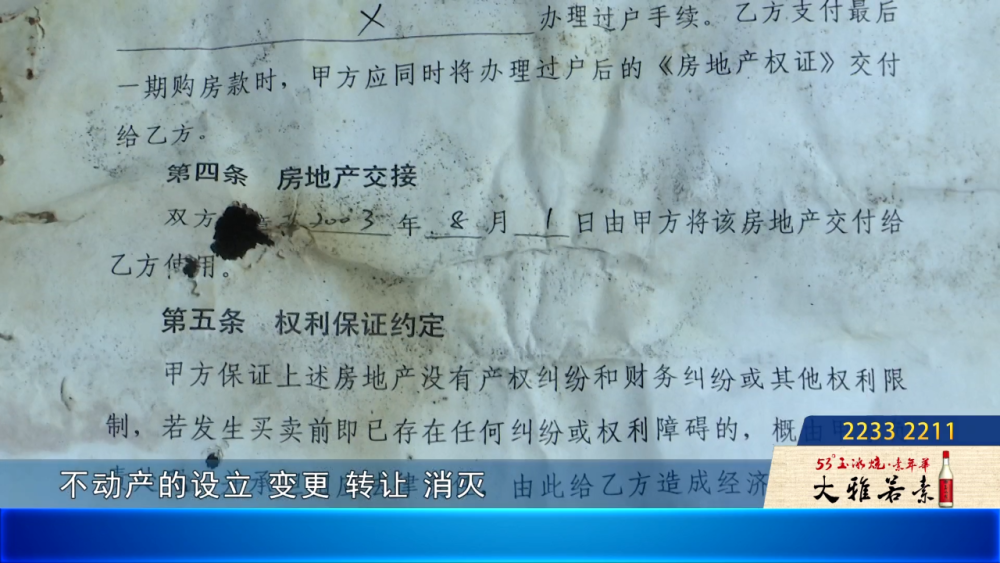 X 办理过户手续。乙方支付最后
一期购房款时，甲方应同时将办理过户后的《房地产权证》交付
给乙方。
第四条 房地产交接
双方 2003 年 8 月 1 日由甲方将该房地产交付给
乙方使用。
第五条 权利保证约定
甲方保证上述房地产没有产权纠纷和财务纠纷或其他权利限
制，若发生买卖前即已存在任何纠纷或权利障碍的，概由甲
由此给乙方造成经济
不动产的设立 变更 转让 消灭
2233 2211
53°玉冰烧·素年华
大雅若素